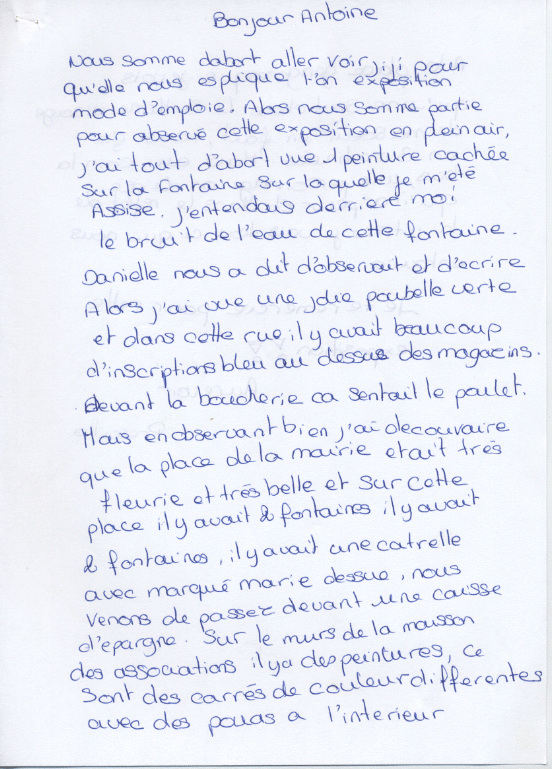 Bonjour Antoine
Nous somme dabort aller voir jiji pour
qu'elle nous esplique t'on exposition
mode d'emploie. Alors nous somme partie
pour observé cette exposition en plein air,
j'ai tout d'abort vue 1 peinture cachée
sur la fontaine sur laquelle je m'été
Assise. j'entendais derriere moi
le bruit de l'eau de cette fontaine.
Danielle nous a dit d'observait et d'ecrire
Alors j'ai vue une jolie poubelle verte
et dans cette rue il y avait beaucoup
d'inscriptions bleu au dessus des magazins.
devant la boucherie ca sentait le poulet.
Mais en observant bien j'ai decouvaire
que la place de la mairie etait très
fleurie et très belle et sur cette
place il y avait 2 fontaines il y avait
2 fontaines, il y avait une catrelle
avec marqué marie dessue, nous
venons de passer devant une causse
d'epargne. Sur le murs de la maison
des associations il y a des peintures, ce
sont des carrés de couleur differentes
avec des pouas a l'interieur